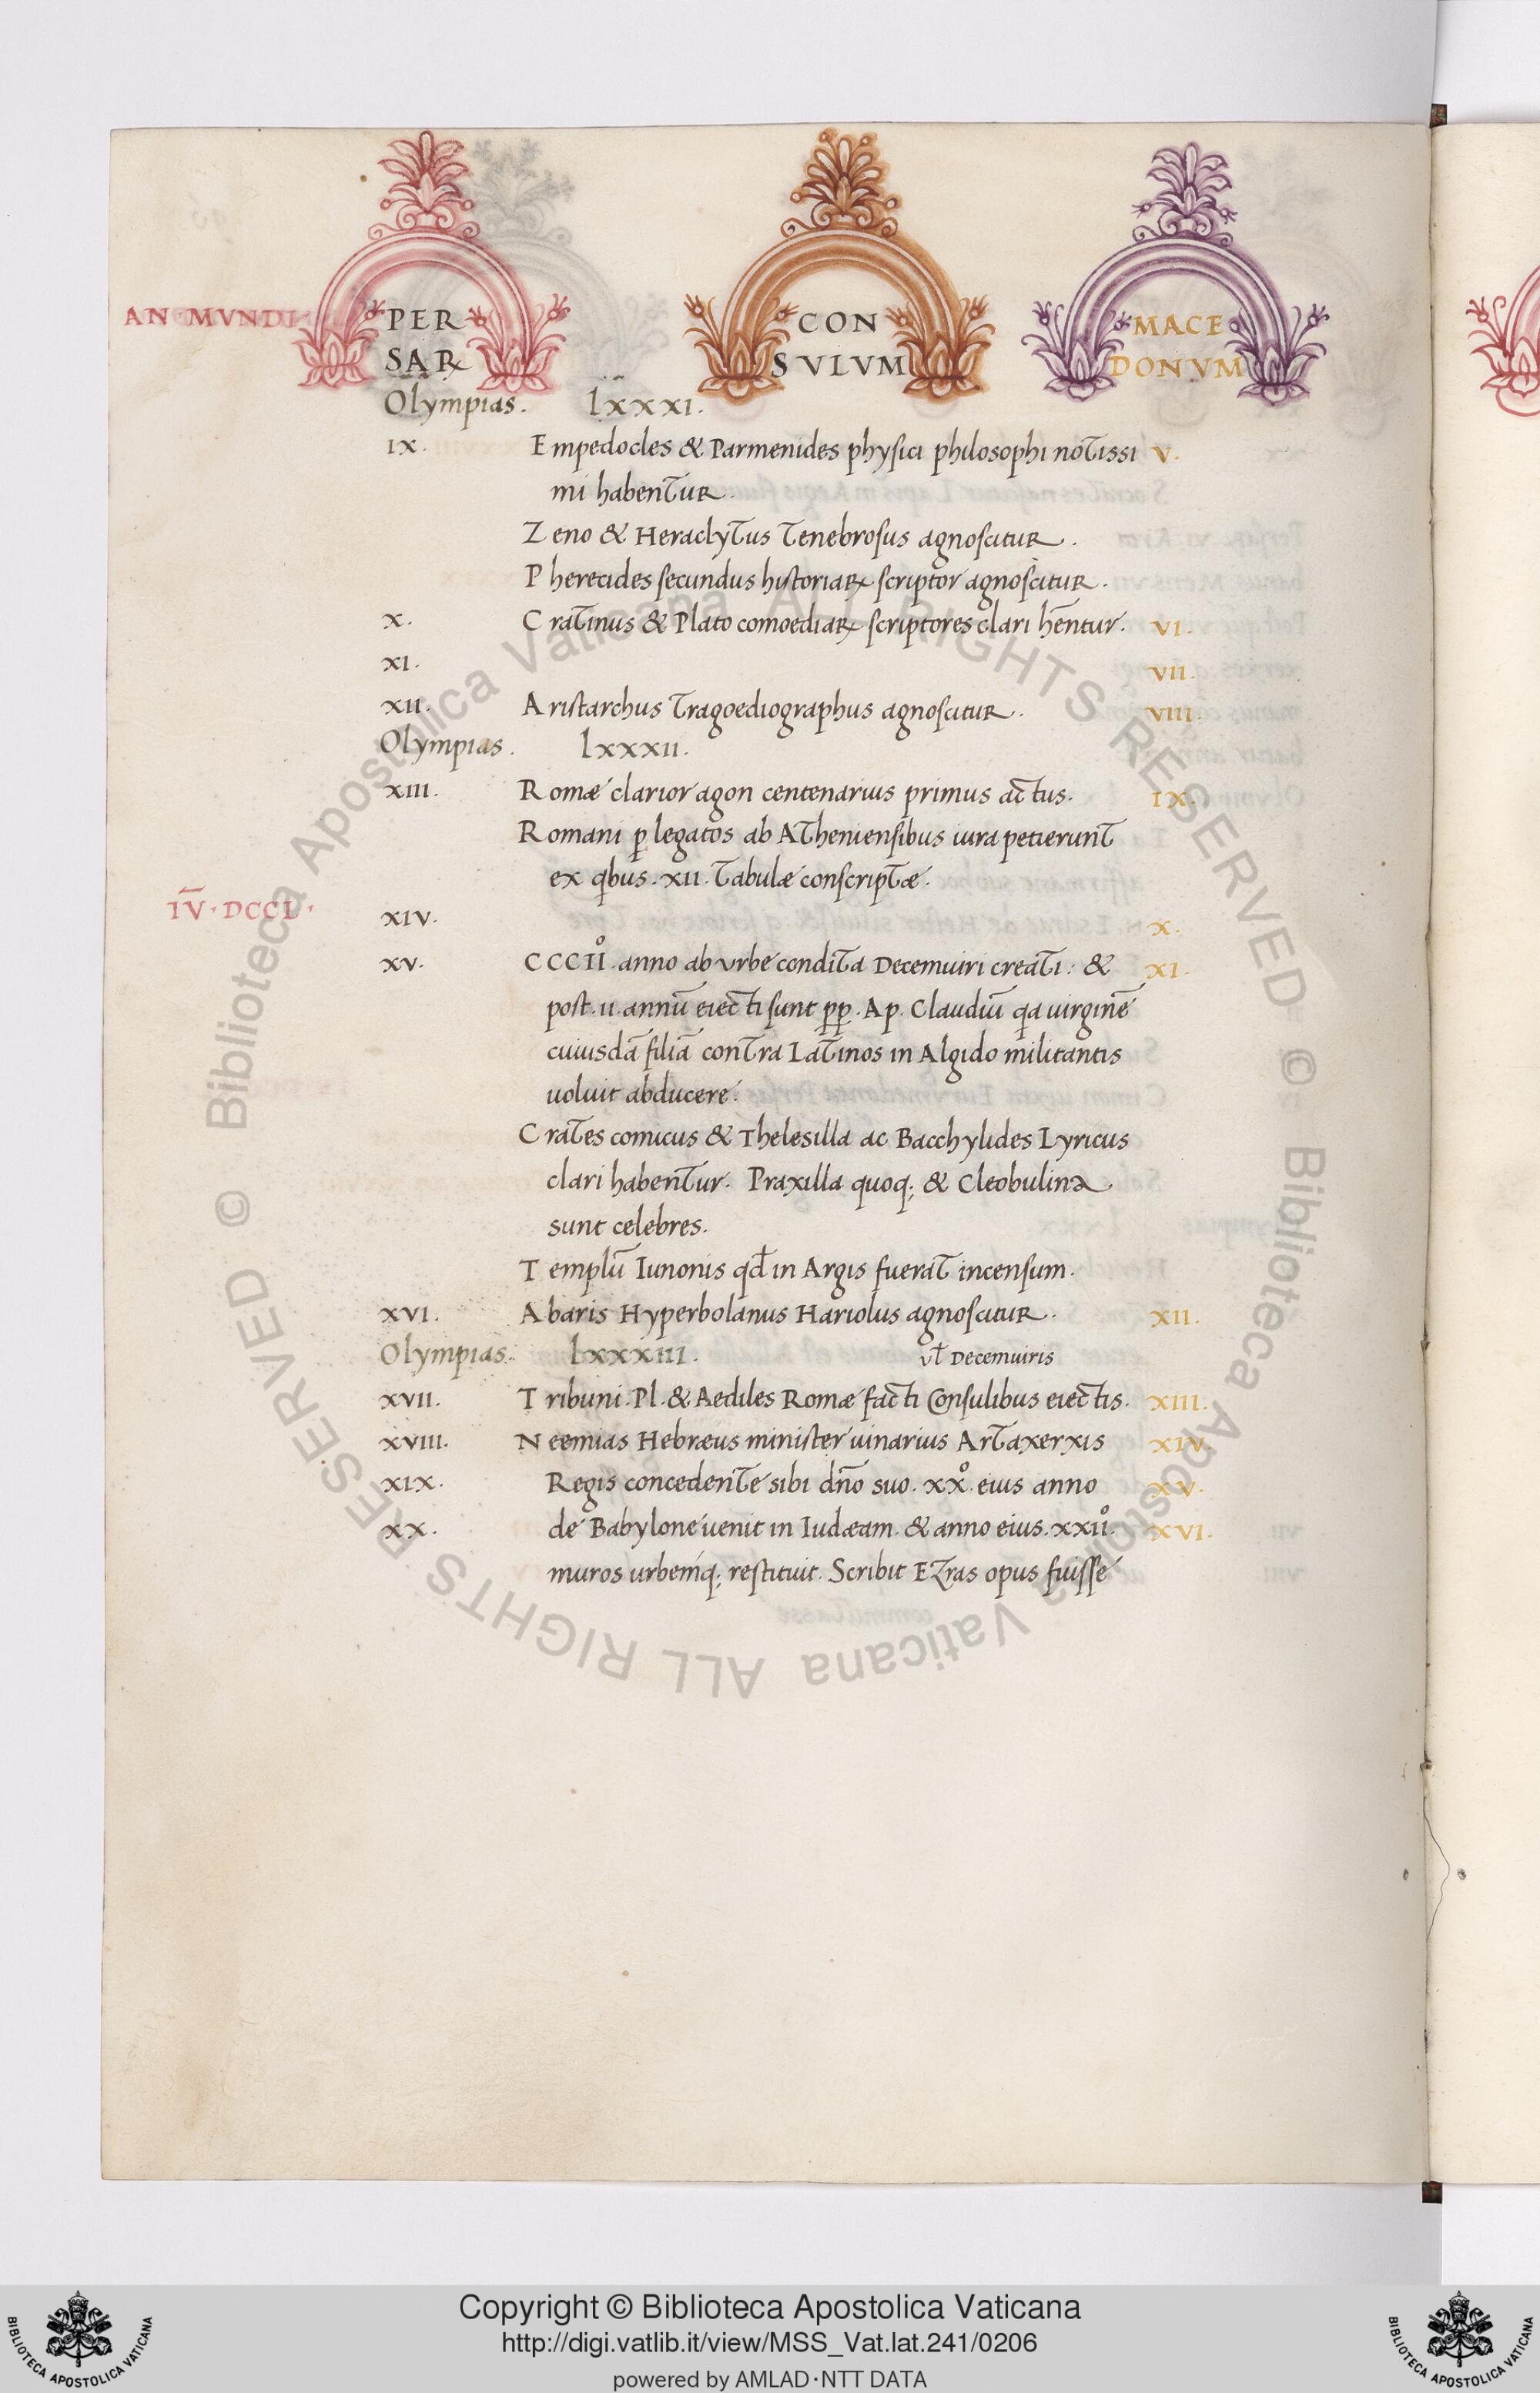 AN MVNDI PER CON MACE
SAꝜ SVLVM DONVM
Olympias. lxxxi.
ix. Empedocles & Parmenides physici philosophi notissi v.
mi habentur.
Zeno & Heraclytus Tenebrosus agnoscitur.
Pherecides secundus historiaꝝ scriptor agnoscitur.
x. Cratinus & Plato comoediaꝝ scriptores clari hẽntur. vi.
xi. vii.
xii. Aristarchus Tragoediographus agnoscitur. viii.
Olympias. lxxxii.
xiii. Romæ clarior agon centenarius primus actus. ix.
Romani ꝑ legatos ab Atheniensibus iura petierunt
ex qbus. xii. Tabulæ conscriptæ.
IV̅·DCCL· xiv. x.
xv. CCCIIº. anno ab vrbe condita Decemuiri creati: & xi.
post. ii. annũ eiecti sunt ꝑꝑ. Ap. Claudiũ qa uirginẽ
cuiusdã filiã contra Latinos in Algido militantis
uoluit abducere.
Crates comicus & Thelesilla ac Bacchylides Lyricus
clari habentur. Praxilla quoq; & Cleobulina
sunt celebres.
Templũ Iunonis qd̃ in Argis fuerat incensum.
xvi. Abaris Hyperbolanus Hariolus agnoscitur. xii.
Olympias. lxxxiii. vl̃ Decemuiris
xvii. Tribuni. Pl. & Aediles Romæ facti Consulibus eiectis. xiii.
xviii. Neemias Hebræus minister uinarius Artaxerxis xiv.
xix. Regis concedente sibi dño suo. xxº. eius anno xv.
xx. de Babylone uenit in Iudæam. & anno eius. xxiiº. xvi.
muros urbemq; restituit. Scribit Ezras opus fuisse
© Biblioteca Apostolica Vaticana ALL RIGHTS RESERVED © Biblioteca Apostolica Vaticana ALL RIGHTS RESERVED
Copyright © Biblioteca Apostolica Vaticana
http://digi.vatlib.it/view/MSS_Vat.lat.241/0206
powered by AMLAD·NTT DATA
BIBLIOTECA APOSTOLICA VATICANA
BIBLIOTECA APOSTOLICA VATICANA